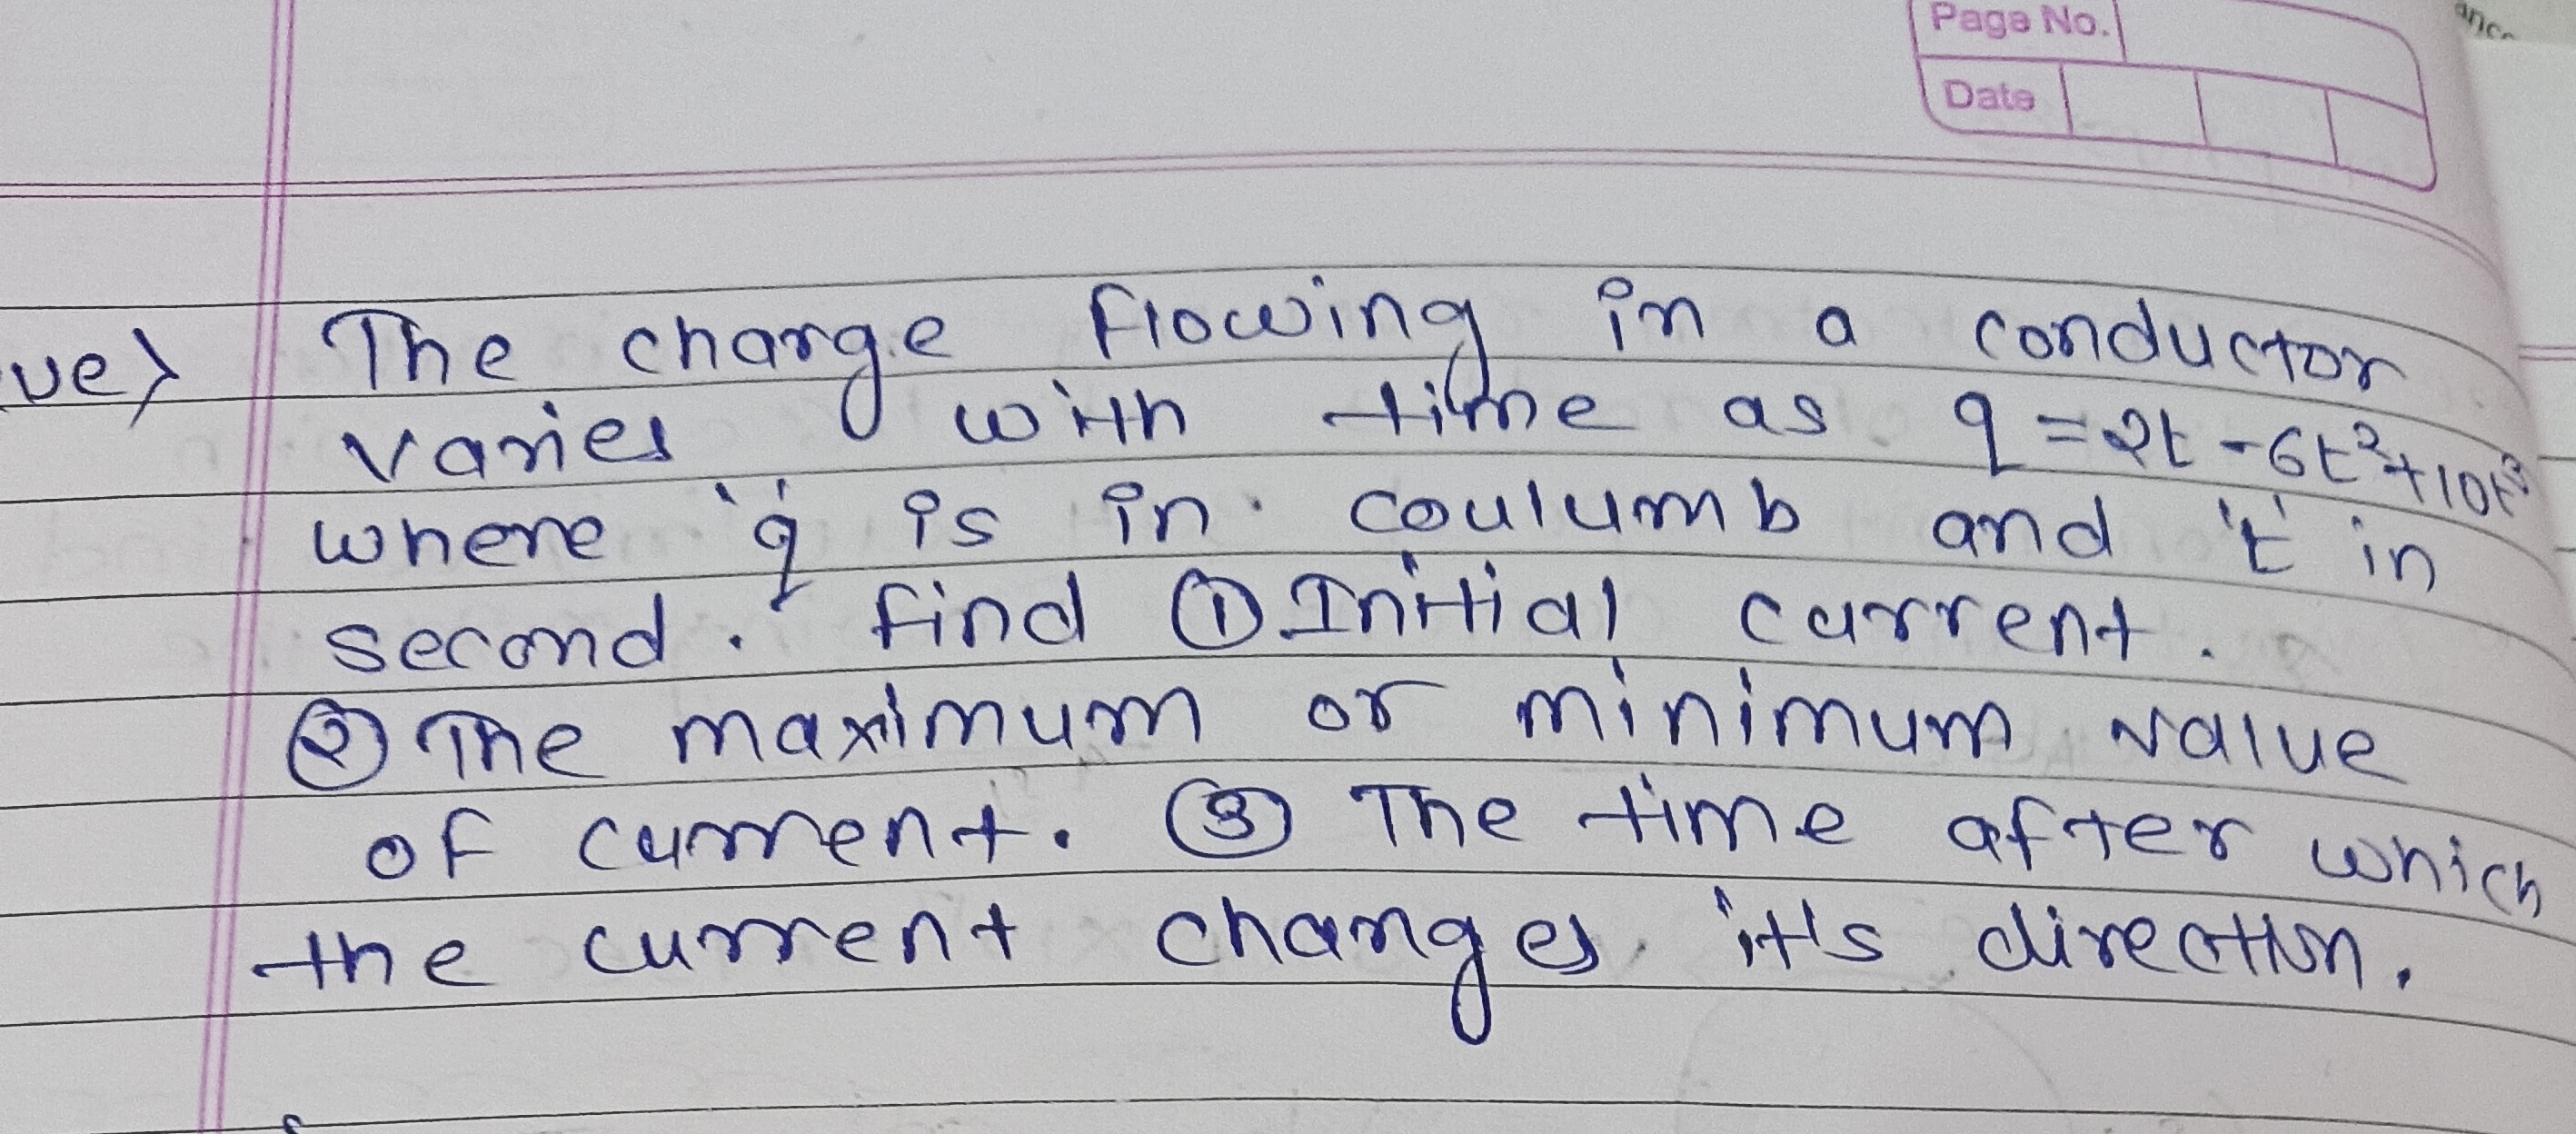 Page No.
Date
ue> The charge flowing in a conductor
varies with time as q = 2t - 6t²+10t³
where 'q' is in coulumb and 't' in
second. find ① Initial current.
② The maximum or minimum value
of current. ③ The time after which
the current changes it's direction.